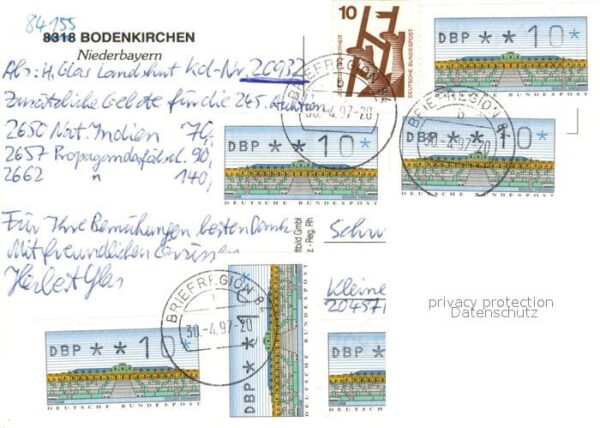 84155
8318 BODENKIRCHEN
Niederbayern
Abs: H. Glas Landshut Kd-Nr. 20932
Zusätzliche Gebote für die 245. Auktion
2650 Nat. Indien 70,
2657 Propagandafäl. 90,
2662 " 140,
Für Ihre Bemühungen besten Dank
Mit freundlichen Grüssen
Herbert Glas
10
DEUTSCHE BUNDESPOST
DBP * * 10 *
DEUTSCHE BUNDESPOST
BRIEFREGION 84
30.-4.97-20
BRIEFREGION 84
b
30.-4.97-20
DBP * * 10 *
DEUTSCHE BUNDESPOST
DBP * * 10 *
DEUTSCHE BUNDESPOST
tbild GmbH
z. - Reg. Rh
Schw
Kleine
20457
privacy protection
Datenschutz
BRIEFREGION 84
30.-4.97-20
DBP * * 10 *
DEUTSCHE BUNDESPOST
DBP * * 10 *
DEUTSCHE BUNDESPOST
DBP * *
DEUTSCHE